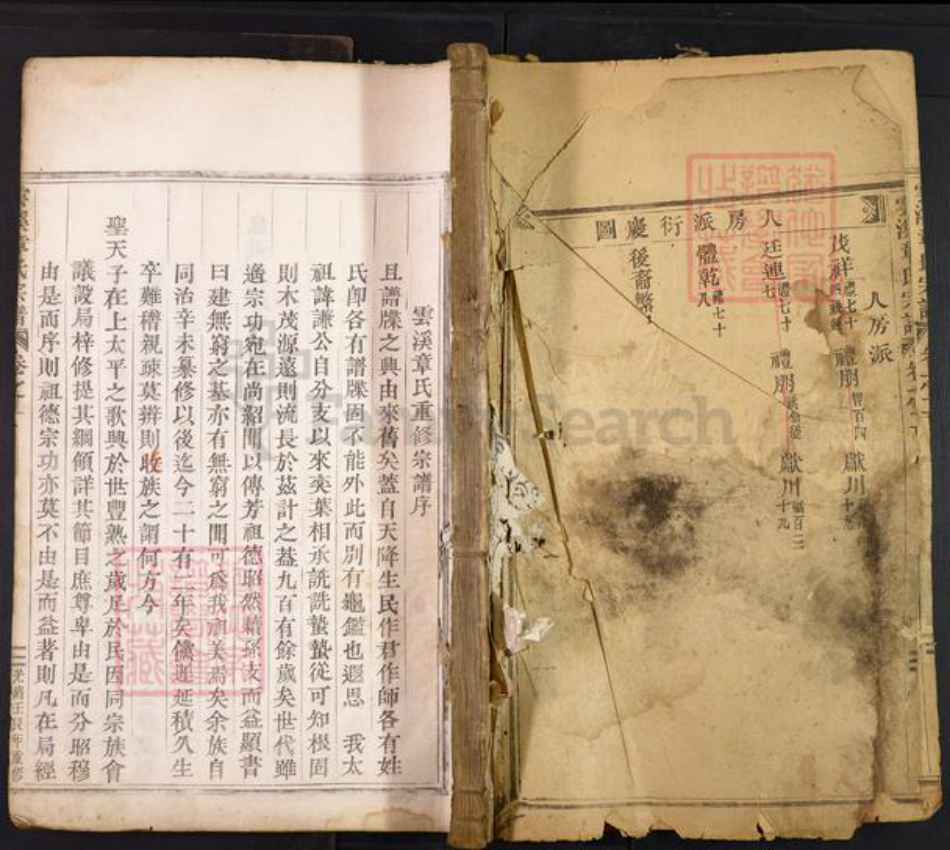 人房派衍慶圖
人房派
茂祥
禮朋
獻川
廷連七
禮七十
禮朋
獻川
十九
體乾
禮七十八
後裔繁
雲溪章氏重修宗譜序
且譜牒之興由來舊矣蓋自天降生民作君作師各有姓
氏卽各有譜牒固不能外此而別有龜鑑也遐思 我太
祖諱謙公自分支以來奕葉相承詵詵蟄蟄從可知根固
則木茂源遠則流長於茲計之葢九百有餘歲矣世代雖
遙宗功宛在尚紹聞以傳芳祖德昭然績孫支而益顯書
曰建無窮之基亦有無窮之聞可爲我祖美焉矣余族自
同治辛未纂修以後迄今二十有二年矣儻遲延積久生
卒難稽親疎莫辨則收族之謂何方今
聖天子在上太平之歌興於世豐熟之歲足於民因同宗族會
議設局梓修提其綱領詳其節目庶尊卑由是而分昭穆
由是而序則祖德宗功亦莫不由是而益著則凡在局經
雲溪章氏宗譜
卷之
光緒壬辰年重修
FamilySearch